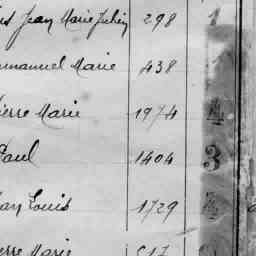 Jean Marie Julien 298 1
mmanuel Marie 438 1
ierre Marie 1974 4
Paul 1404 3
ean Louis 1729
erre Marie 517